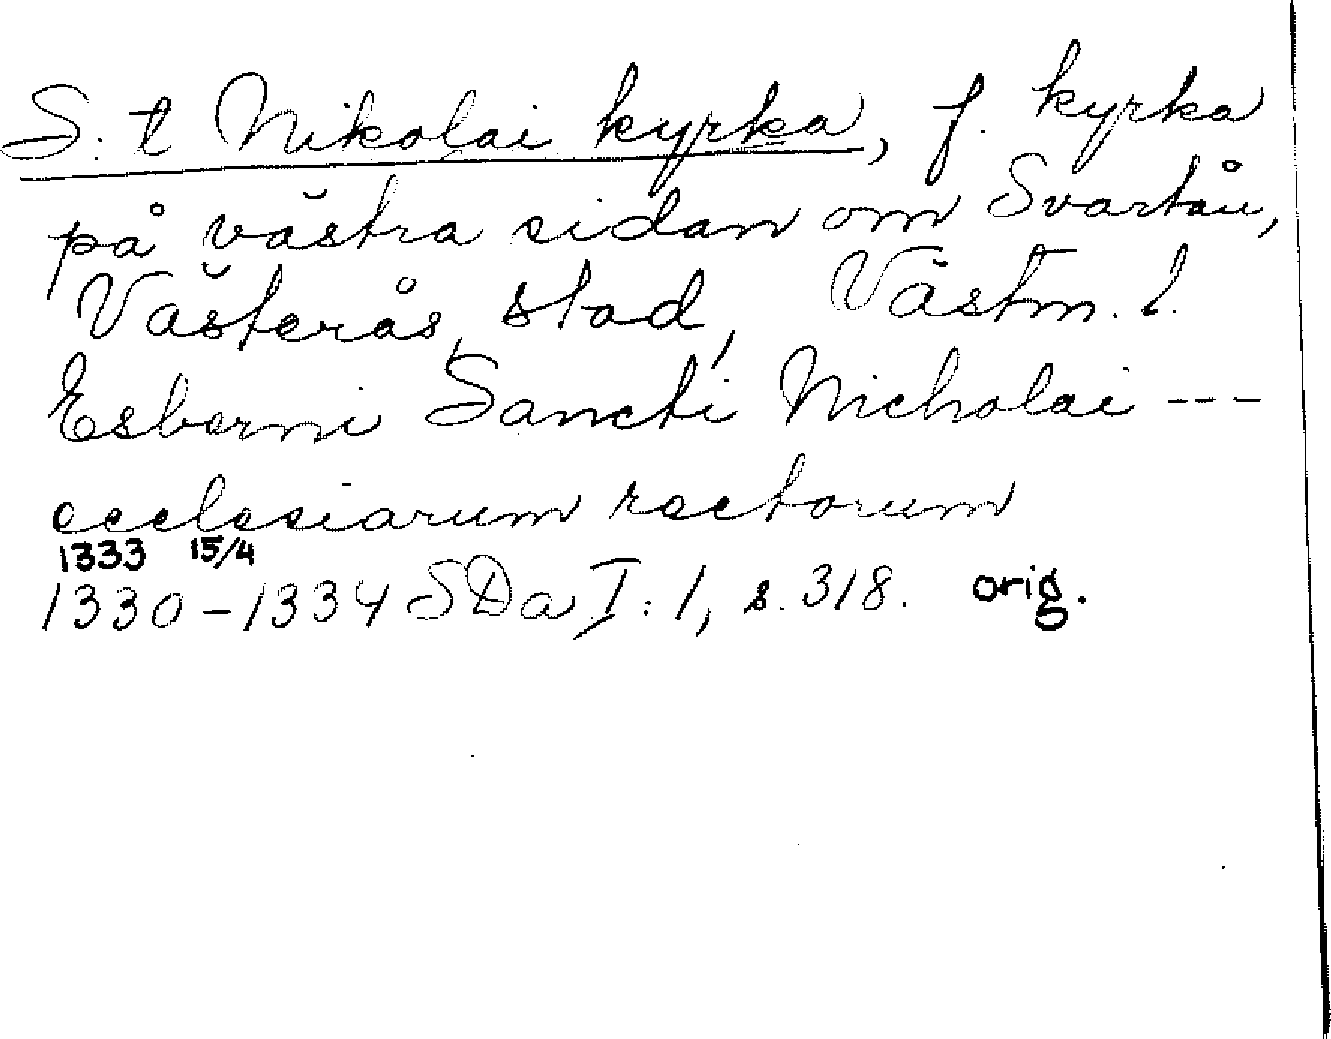 S.t Nikolai kyrka, f. kyrka
på västra sidan om Svartån,
Västerås, stad, Västm. l.
Esberni Sancti Nicholai ---
ecclesiarum rectorum
1333 15/4
1330-1334 SDa I:1, s. 318. orig.